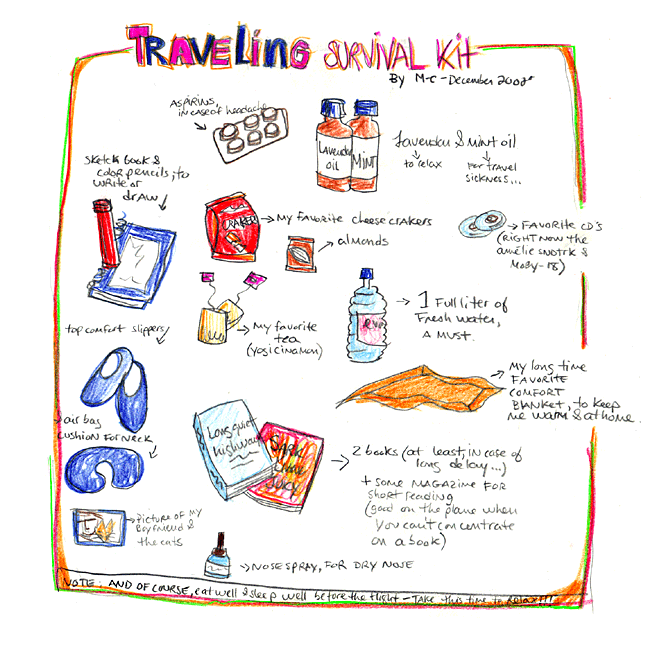 TRAVELING SURVIVAL KIT
By M-C - December 2003
ASPIRINS,
in case of headache
LAVENDER
OIL
MINT
lavender & mint oil
to relax
for travel
sickness...
sketch book &
color pencils, to
write or
draw
CRAKERS
My favorite cheese crakers
almonds
FAVORITE CD'S
(RIGHT NOW the
amélie sndtrk &
Moby-18)
My favorite
tea
(yogi cinamon)
1 Full liter of
Fresh water,
A MUST.
top comfort slippers
My long time
FAVORITE
COMFORT
BLANKET, to keep
me warm & at home.
air bag
cushion for neck
Long quiet
highway
SARK
2 books (at least, in case of
long delay...)
+ some MAGAZINE FOR
short reading
(good on the plane when
you can't concentrate
on a book)
PICTURE OF MY
Boyfriend &
the cats
NOSE SPRAY, FOR DRY NOSE
NOTE: AND OF COURSE, eat well & sleep well before the flight - TAKE this time to Relax!!!